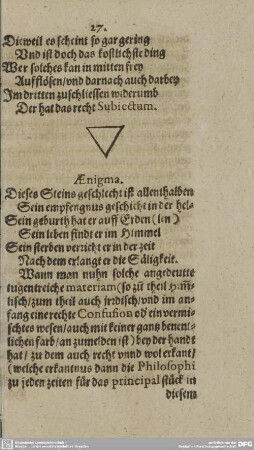 27.
Dieweil es scheint so gar gering
Vnd ist doch das köstlichste ding
Wer solches kan in mitten frey
Aufflösen/vnd darnach auch darbey
Im dritten zuschliessen widerumb
Der hat das recht Subiectum.
Ænigma.
Dieses Steins geschlecht ist allenthalben
Sein empfengnus geschicht in der hel
Sein geburth hat er auff Erden (len)
Sein leben findt er im Himmel
Sein sterben verricht er in der zeit
Nach dem erlangt er die Säligkeit.
Wann man nuhn solche angedeutte
tugentreiche materiam (so zů theil
lisch/zum theil auch jrdisch/vnd im an-
fang eine rechte Confusion od ein vermi-
schtes wesen/auch mit keiner gantz benent-
lichen farb/an zumelden ist) bey der handt
hat/zu dem auch recht vnnd wol erkant/
(welche erkantnus dann die Philosophi
zu jeden zeiten für das principal stück in
diesem